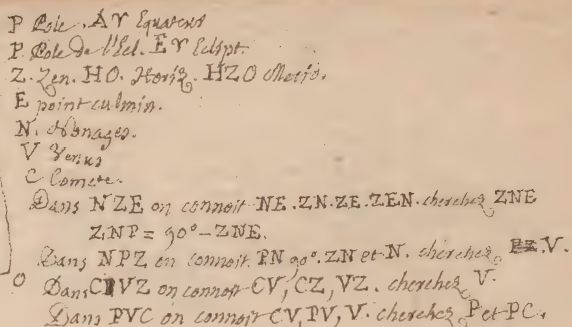 P Pole. A♈ Equateur
P. Pole de l'Ecl. E♈ Eclipt.
Z. Zen. HO. Horiz. HZO Merid.
E point culmin.
N. Nonages.
V Venus
C Comete.
Dans NZE on connoit NE. ZN. ZE. ZEN. cherchez ZNE
ZNP = 90° - ZNE.
Dans NPZ on connoit. PN 90°. ZN et N. cherchez V.
O Dans CVZ on connoit CV, CZ, VZ. cherchez V.
Dans PVC on connoit CV, PV, V. cherchez P et PC.